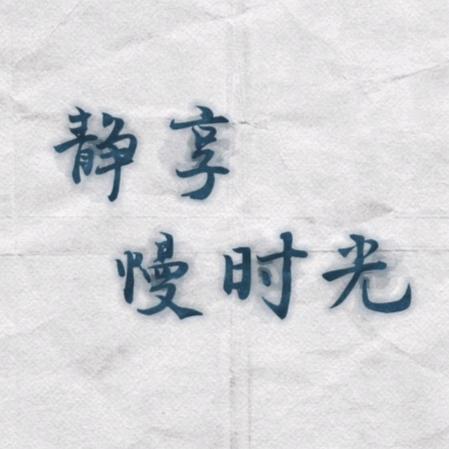 静享
慢时光